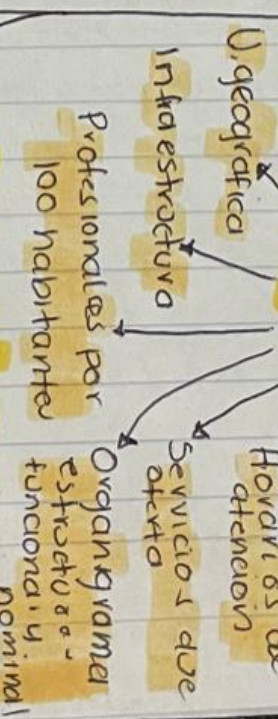 U. geográfica
Infraestructura
Profesionales por
100 habitantes
Horarios de
atención
Servicios que
oferta
Organigrama
estructura-
funcional y
nominal